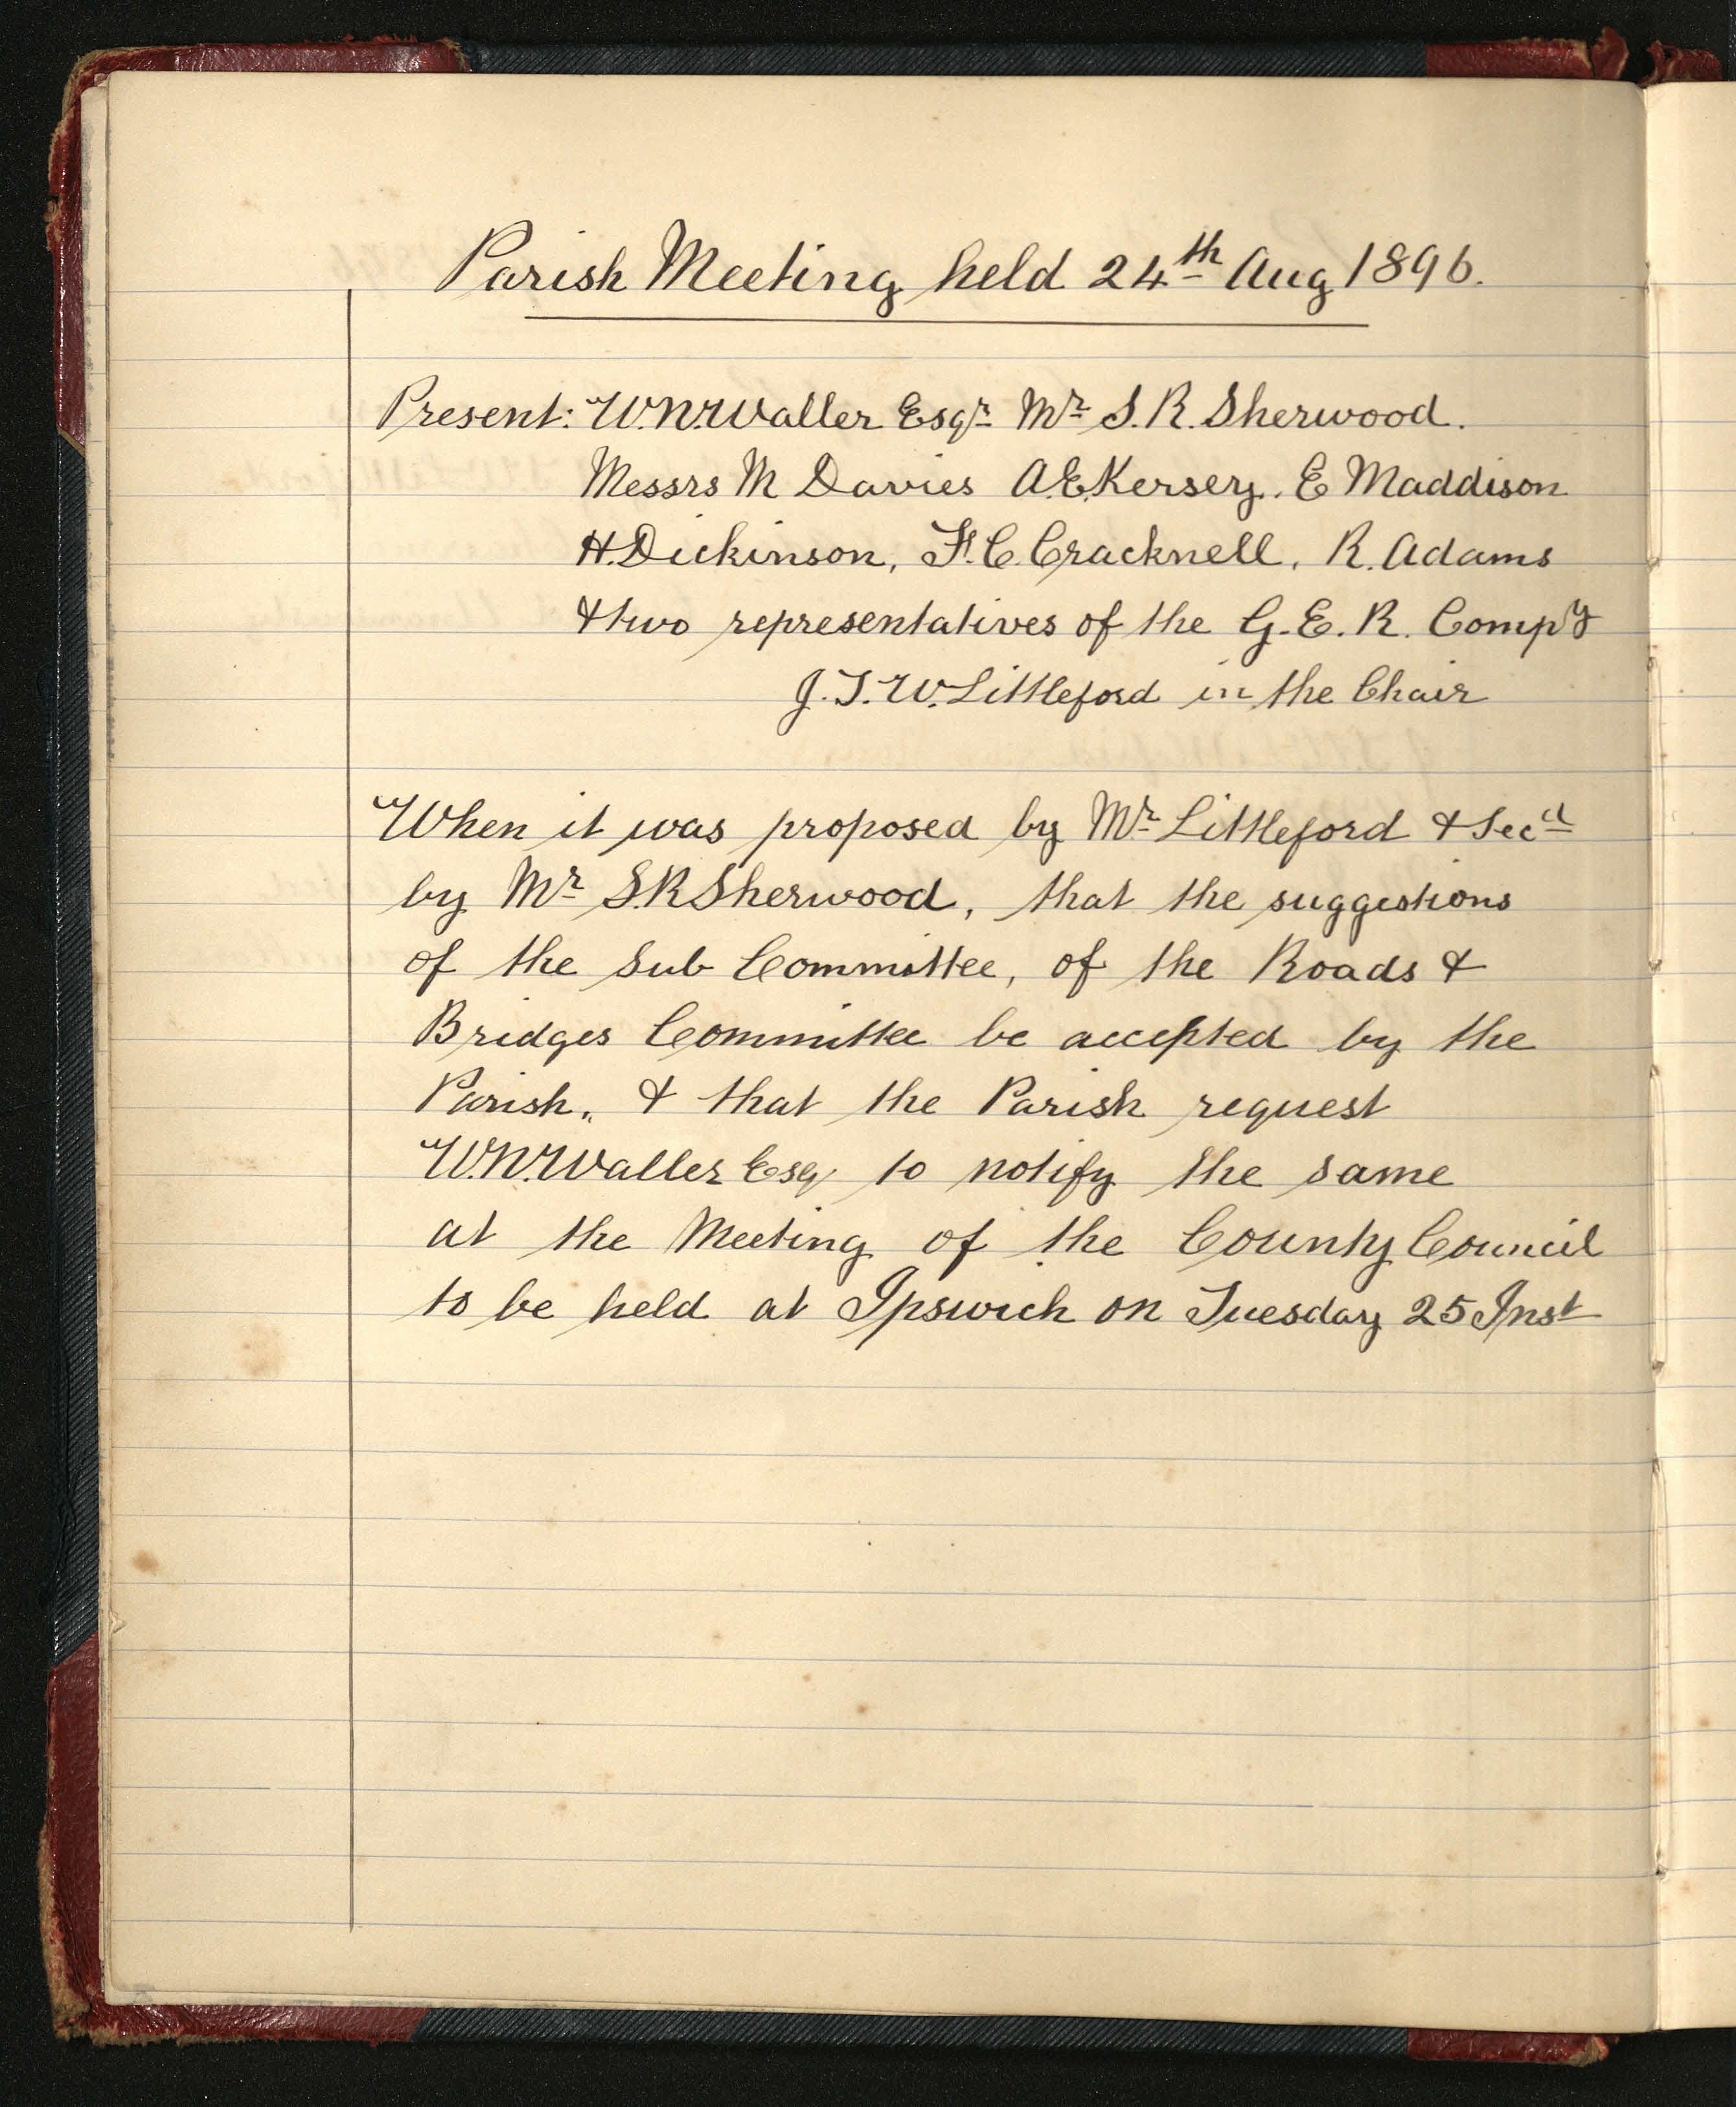 Parish Meeting held 24th Aug 1896.
Present: W.N.Waller Esqr Mr S.R. Sherwood.
Messrs M Davies A.E.Kersey. E Maddison
H.Dickinson, F.C.Cracknell. R. Adams
& two representatives of the G.E.R. Compy
J.T.W.Littleford in the Chair
When it was proposed by Mr Littleford & Secd
by Mr S.R Sherwood, that the suggestions
of the Sub Committee, of the Roads &
Bridges Committee be accepted by the
Parish, & that the Parish request
W.N.Waller Esq to notify the same
at the Meeting of the County Council
to be held at Ipswich on Tuesday 25 Inst